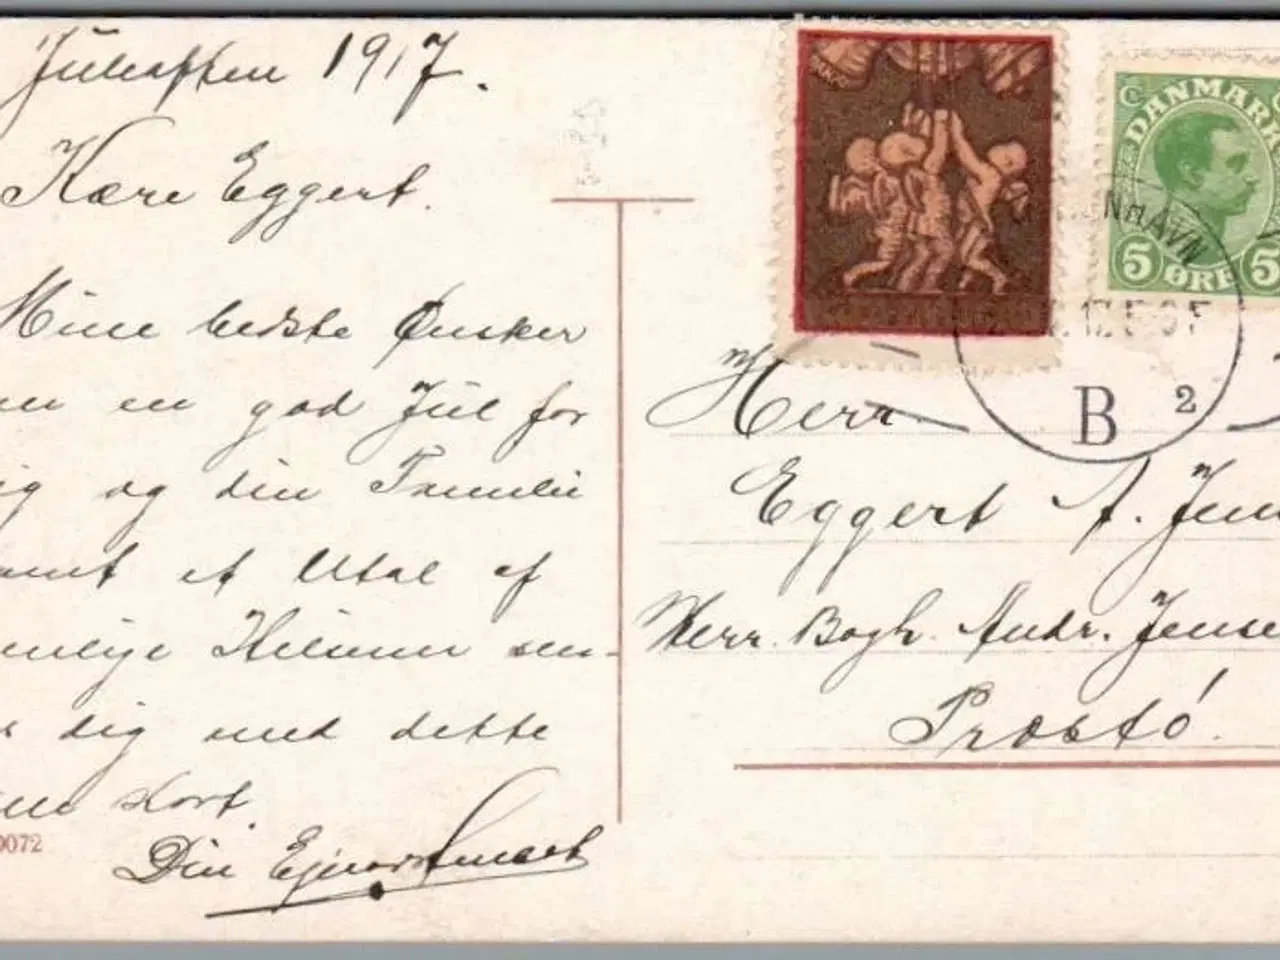 Juleaften 1917.
Kære Eggert.
Mine bedste Ønsker
om en god Jul for
dig og din Familie
samt et Utal af
venlige Hilsener sen-
der dig med dette
mine Kort.
Din Ejnar
0072
DANMARK
5 ØRE 5
NHAVN
B 2
Herr
Eggert A. Jen
Herr. Bogh. Andr. Jense
Præstø.